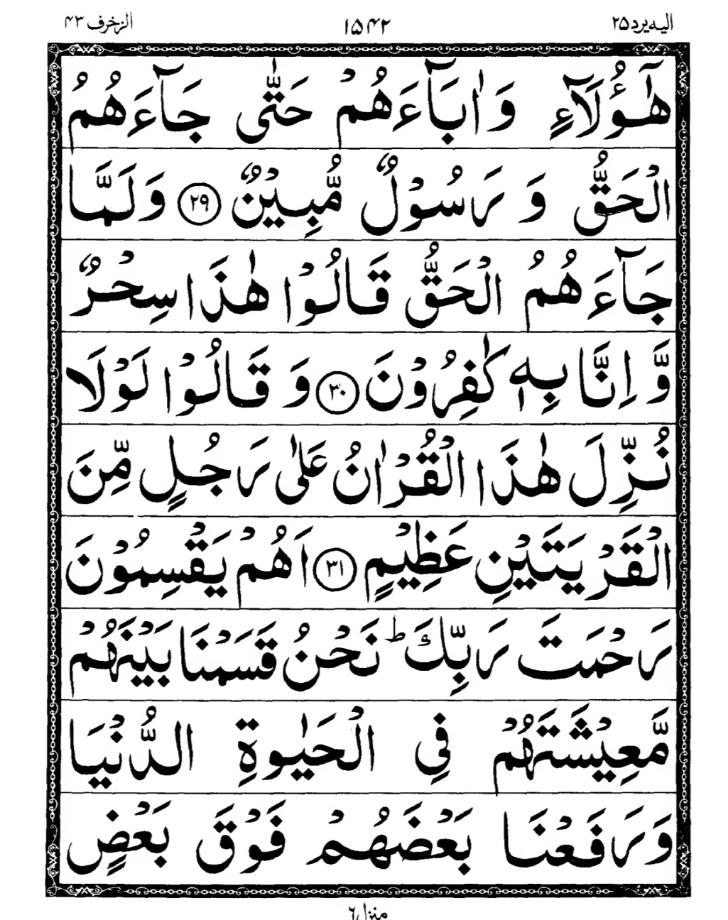 اليه يرد ٢٥ ١٥٤٢ الزخرف ٤٣
هٰٓؤُلَآءِ وَ اٰبَآءَهُمْ حَتّٰى جَآءَهُمُ
الْحَقُّ وَ رَسُوْلٌ مُّبِيْنٌ ﴿٢٩﴾ وَ لَمَّا
جَآءَهُمُ الْحَقُّ قَالُوْا هٰذَا سِحْرٌ
وَّ اِنَّا بِهٖ كٰفِرُوْنَ ﴿٣٠﴾ وَ قَالُوْا لَوْلَا
نُزِّلَ هٰذَا الْقُرْاٰنُ عَلٰى رَجُلٍ مِّنَ
الْقَرْيَتَيْنِ عَظِيْمٍ ﴿٣١﴾ اَهُمْ يَقْسِمُوْنَ
رَحْمَتَ رَبِّكَ ؕ نَحْنُ قَسَمْنَا بَيْنَهُمْ
مَّعِيْشَتَهُمْ فِي الْحَيٰوةِ الدُّنْيَا
وَ رَفَعْنَا بَعْضَهُمْ فَوْقَ بَعْضٍ
منزل ٦